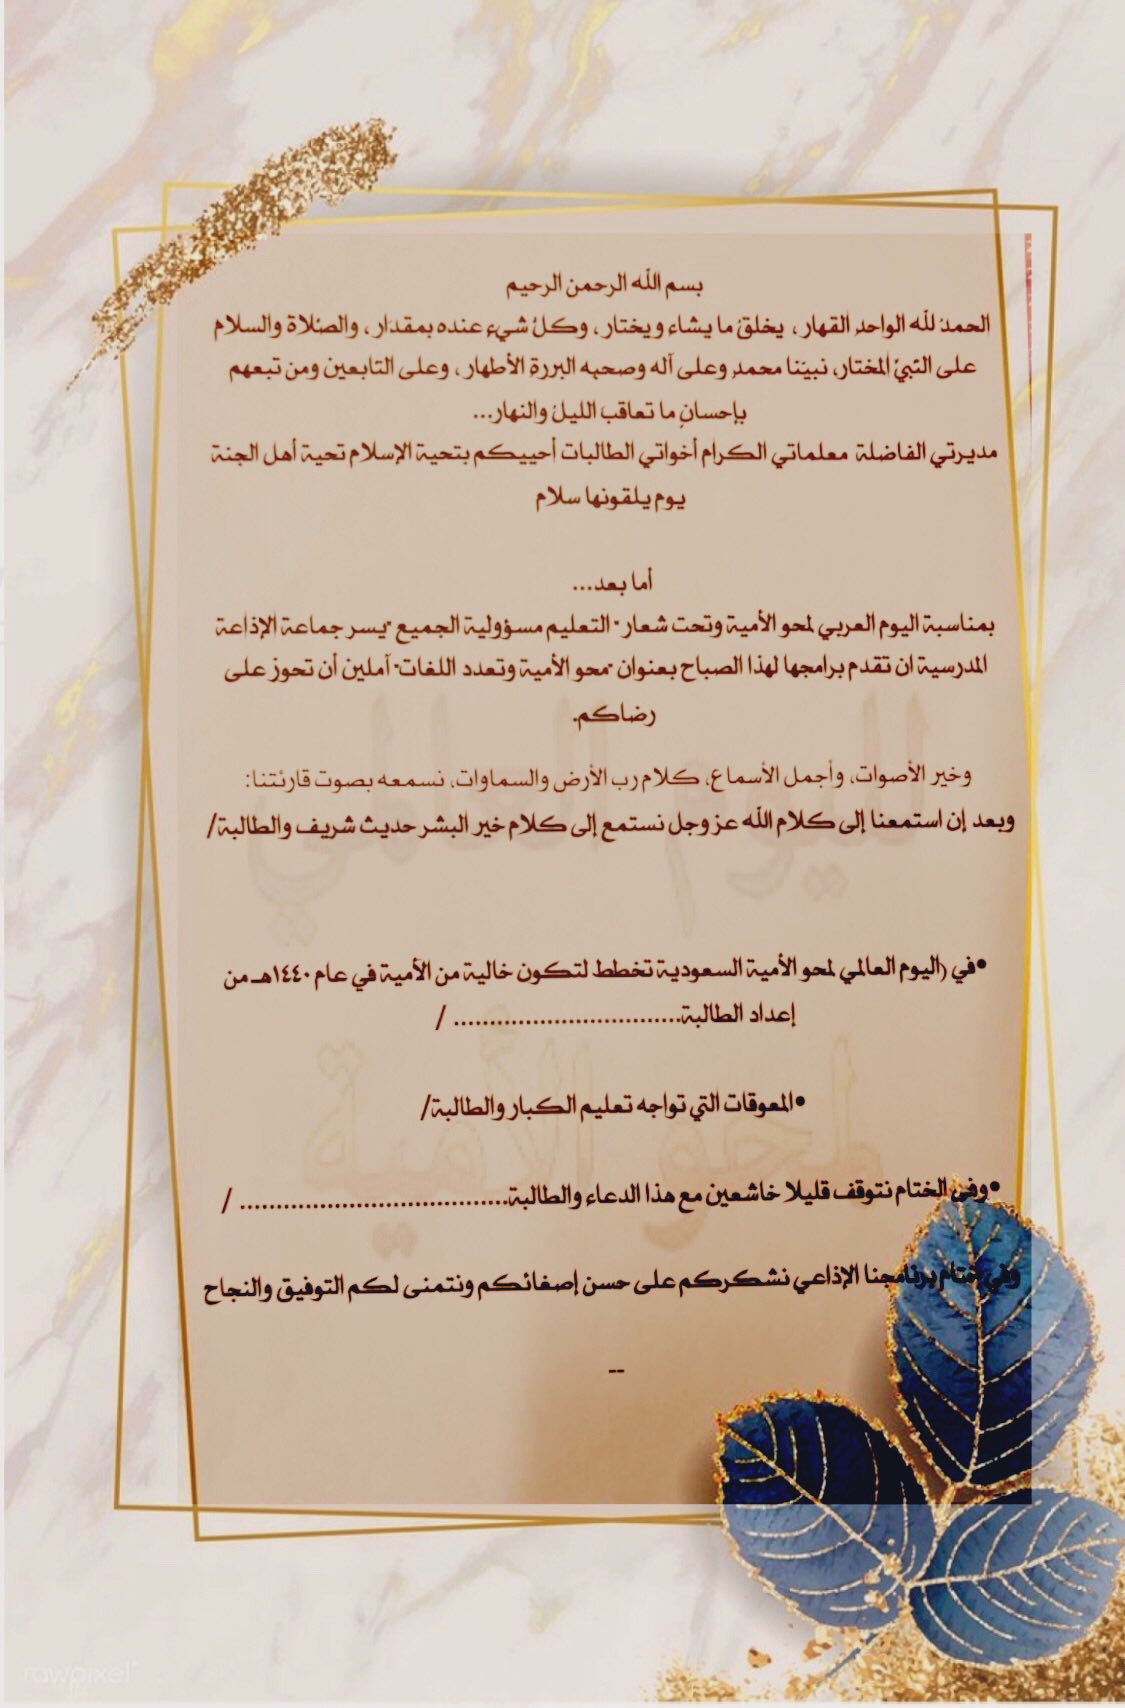 بسم الله الرحمن الرحيم
الحمدُ لله الواحدِ القهار ، يخلقُ ما يشاء ويختار ، وكلُ شيءٍ عنده بمقدار ، والصّلاة والسلام
على النّبيّ المختار، نبيّنا محمدٍ وعلى آله وصحبه البررةِ الأطهار ، وعلى التابعين ومن تبعهم
بإحسانٍ ما تعاقب الليلُ والنهار...
مديرتي الفاضلة معلماتي الكرام أخواتي الطالبات أحييكم بتحية الإسلام تحية أهل الجنة
يوم يلقونها سلام
أما بعد...
بمناسبة اليوم العربي لمحو الأمية وتحت شعار " التعليم مسؤولية الجميع "يسر جماعة الإذاعة
المدرسية ان تقدم برامجها لهذا الصباح بعنوان "محو الأمية وتعدد اللغات" آملين أن تحوز على
رضاكم.
وخير الأصوات، وأجمل الأسماع، كلام رب الأرض والسماوات، نسمعه بصوت قارئتنا:
وبعد إن استمعنا إلى كلام الله عز وجل نستمع إلى كلام خير البشر حديث شريف والطالبة/
لليوم العالمي
•في (اليوم العالمي لمحو الأمية السعودية تخطط لتكون خالية من الأمية في عام ١٤٤٠هـ من
إعداد الطالبة................................ /
لمحو الأمية
•المعوقات التي تواجه تعليم الكبار والطالبة/
•وفي الختام نتوقف قليلا خاشعين مع هذا الدعاء والطالبة..................................... /
وفي ختام برنامجنا الإذاعي نشكركم على حسن إصغائكم ونتمنى لكم التوفيق والنجاح
--
rawpixel